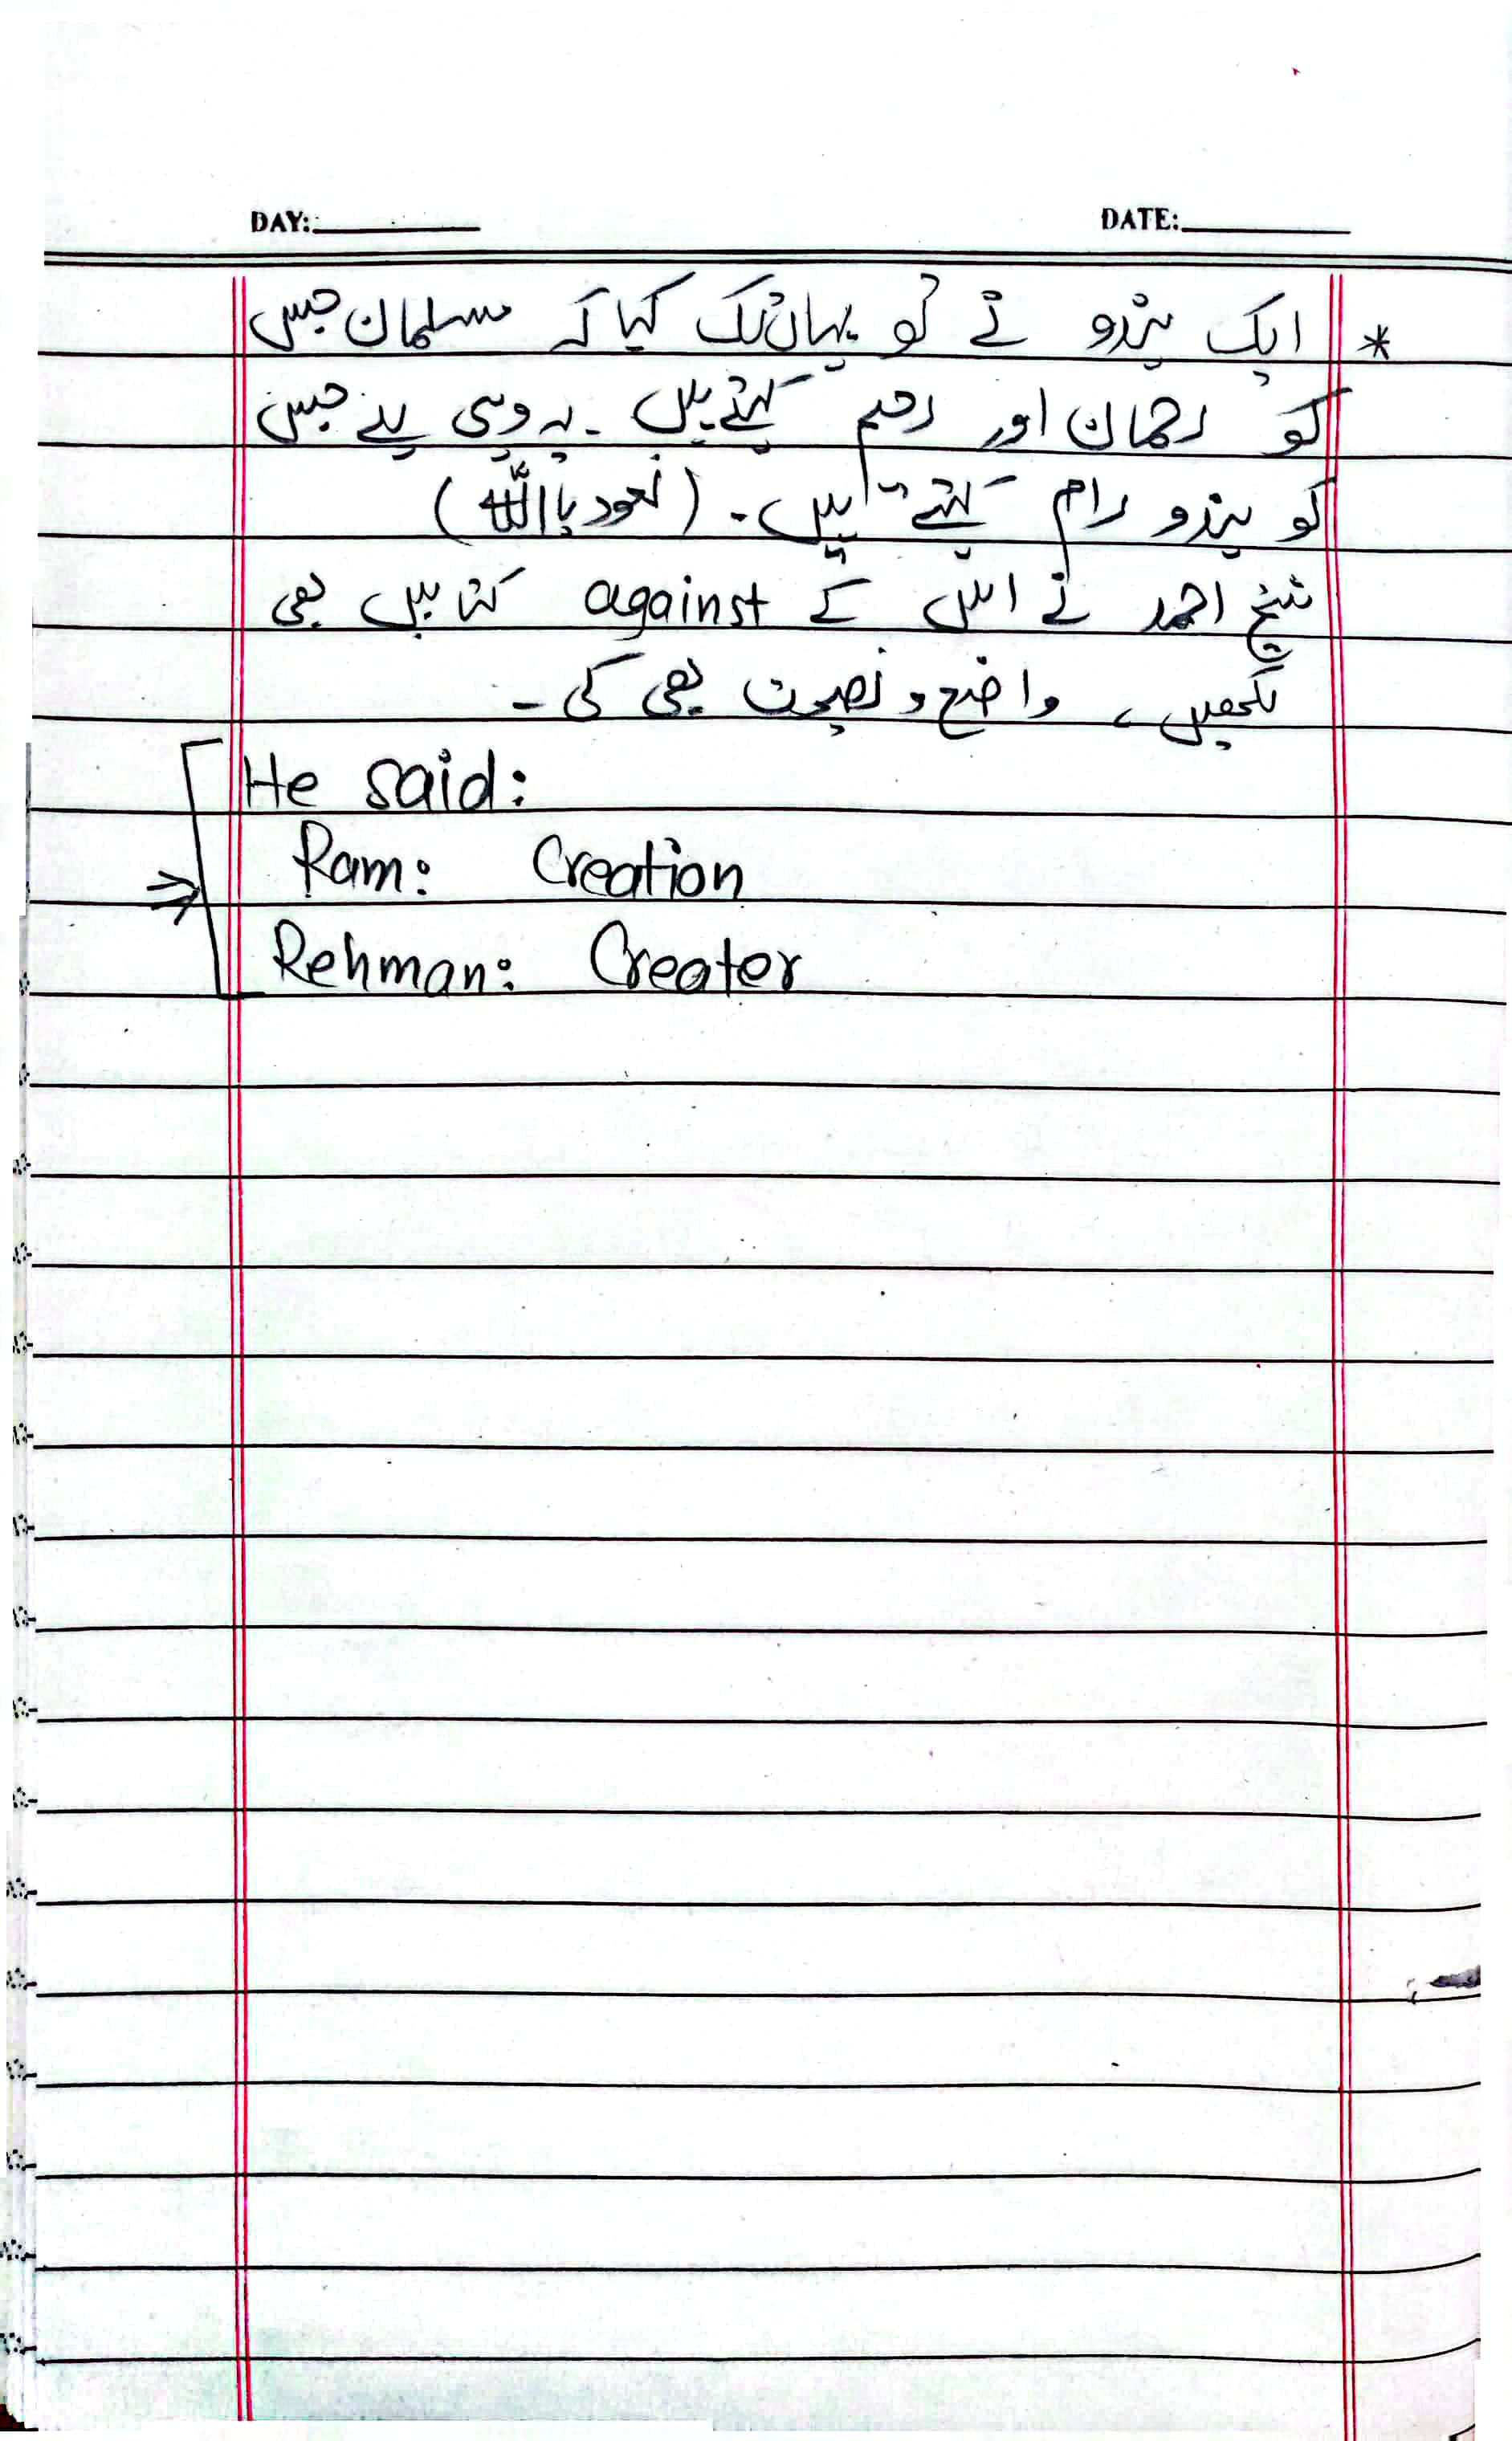 DAY: DATE:
* ایک ہندو نے تو یہاں تک کہا کہ مسلمان جس
کو رحمان اور رحیم کہتے ہیں۔ یہ وہی ہے جس
کو ہندو رام کہتے ہیں۔ (نعوذ باللہ)
شیخ احمد نے اس کے against کتابیں بھی
لکھیں، واضح و نصیحت بھی کی۔
He said:
⇒ Ram: Creation
Rehman: Creater